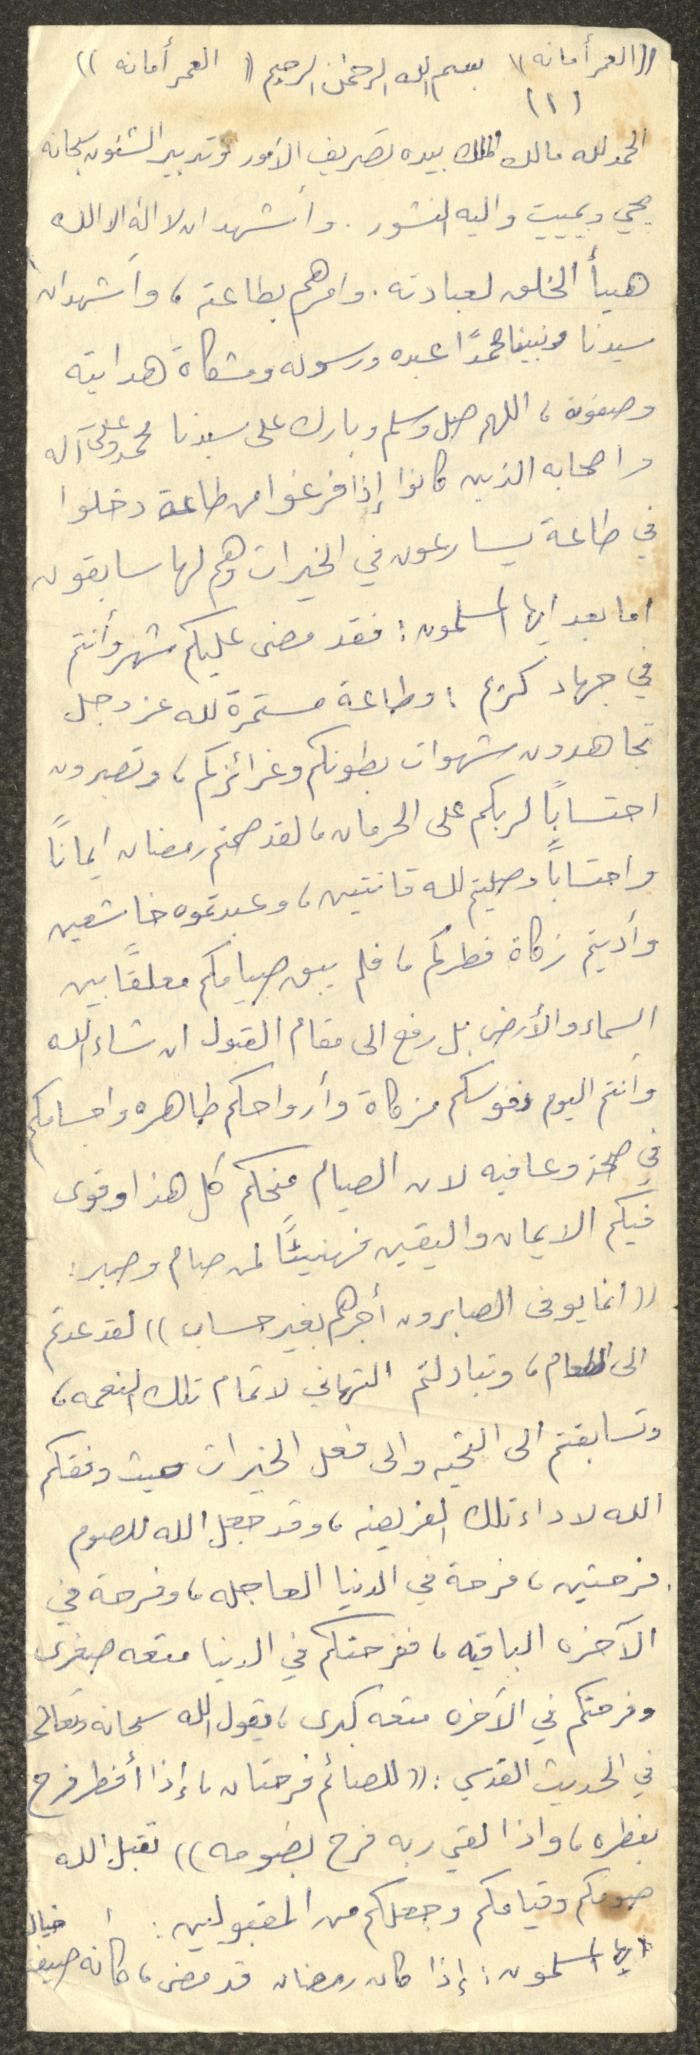 ((العمر أمانة)) بسم الله الرحمن الرحيم (( العمر أمانه ))
(١)
الحمد لله مالك الملك بيده تصريف الأمور وتدبير الشئون سبحانه
يحيي ويميت واليه النشور . وأشهد ان لا اله الا الله
هيأ الخلق لعبادته . وامرهم بطاعته ، وأشهد ان
سيدنا ونبينا محمدًا عبده ورسوله ومشكاة هدايته
وصفوته ، اللهم صل وسلم وبارك على سيدنا محمد وعلى آله
واصحابه الذين كانوا إذا فرغوا من طاعة دخلوا
في طاعة يسارعون في الخيرات وهم لها سابقون
اما بعد ايها المسلمون : فقد مضى عليكم شهر وأنتم
في جهاد كريم ، وطاعة مستمرة لله عز وجل
تجاهدون شهوات بطونكم وغرائزكم ، وتصبرون
احتسابًا لربكم على الحرمان ، لقد صمتم رمضان ايمانًا
واحتسابًا وصليتم لله قانتين ، وعبدتموه خاشعين
وأديتم زكاة فطركم ، فلم يبق صيامكم معلقًا بين
السماء والأرض بل رفع الى مقام القبول ان شاء الله
وأنتم اليوم نفوسكم مزكاة وأرواحكم طاهره واجسامكم
في صحة وعافيه لان الصيام منحكم كل هذا وقوى
فيكم الايمان واليقين فهنيئًا لمن صام وصبر :
(( انما يوفى الصابرون أجرهم بغير حساب )) لقد عدتم
الى الطعام ، وتبادلتم التهاني لاتمام تلك النعمه ،
وتسابقتم الى التحيه والى فعل الخيرات حيث وفقكم
الله لاداء تلك الفريضه ، وقد جعل الله للصوم
فرحتين ، فرحة في الدنيا العاجله ، وفرحة في
الآخره الباقيه ، ففرحتكم في الدنيا متعه صغرى
وفرحتكم في الآخره متعه كبرى ، يقول الله سبحانه وتعالى
في الحديث القدسي : (( للصائم فرحتان ، إذا أفطر فرح
بفطره ، واذا لقي ربه فرح بصومه )) تقبل الله
صومكم وقيامكم وجعلكم من المقبولين :
ايها المسلمون : إذا كان رمضان قد مضى ، كانه ضيف خيال